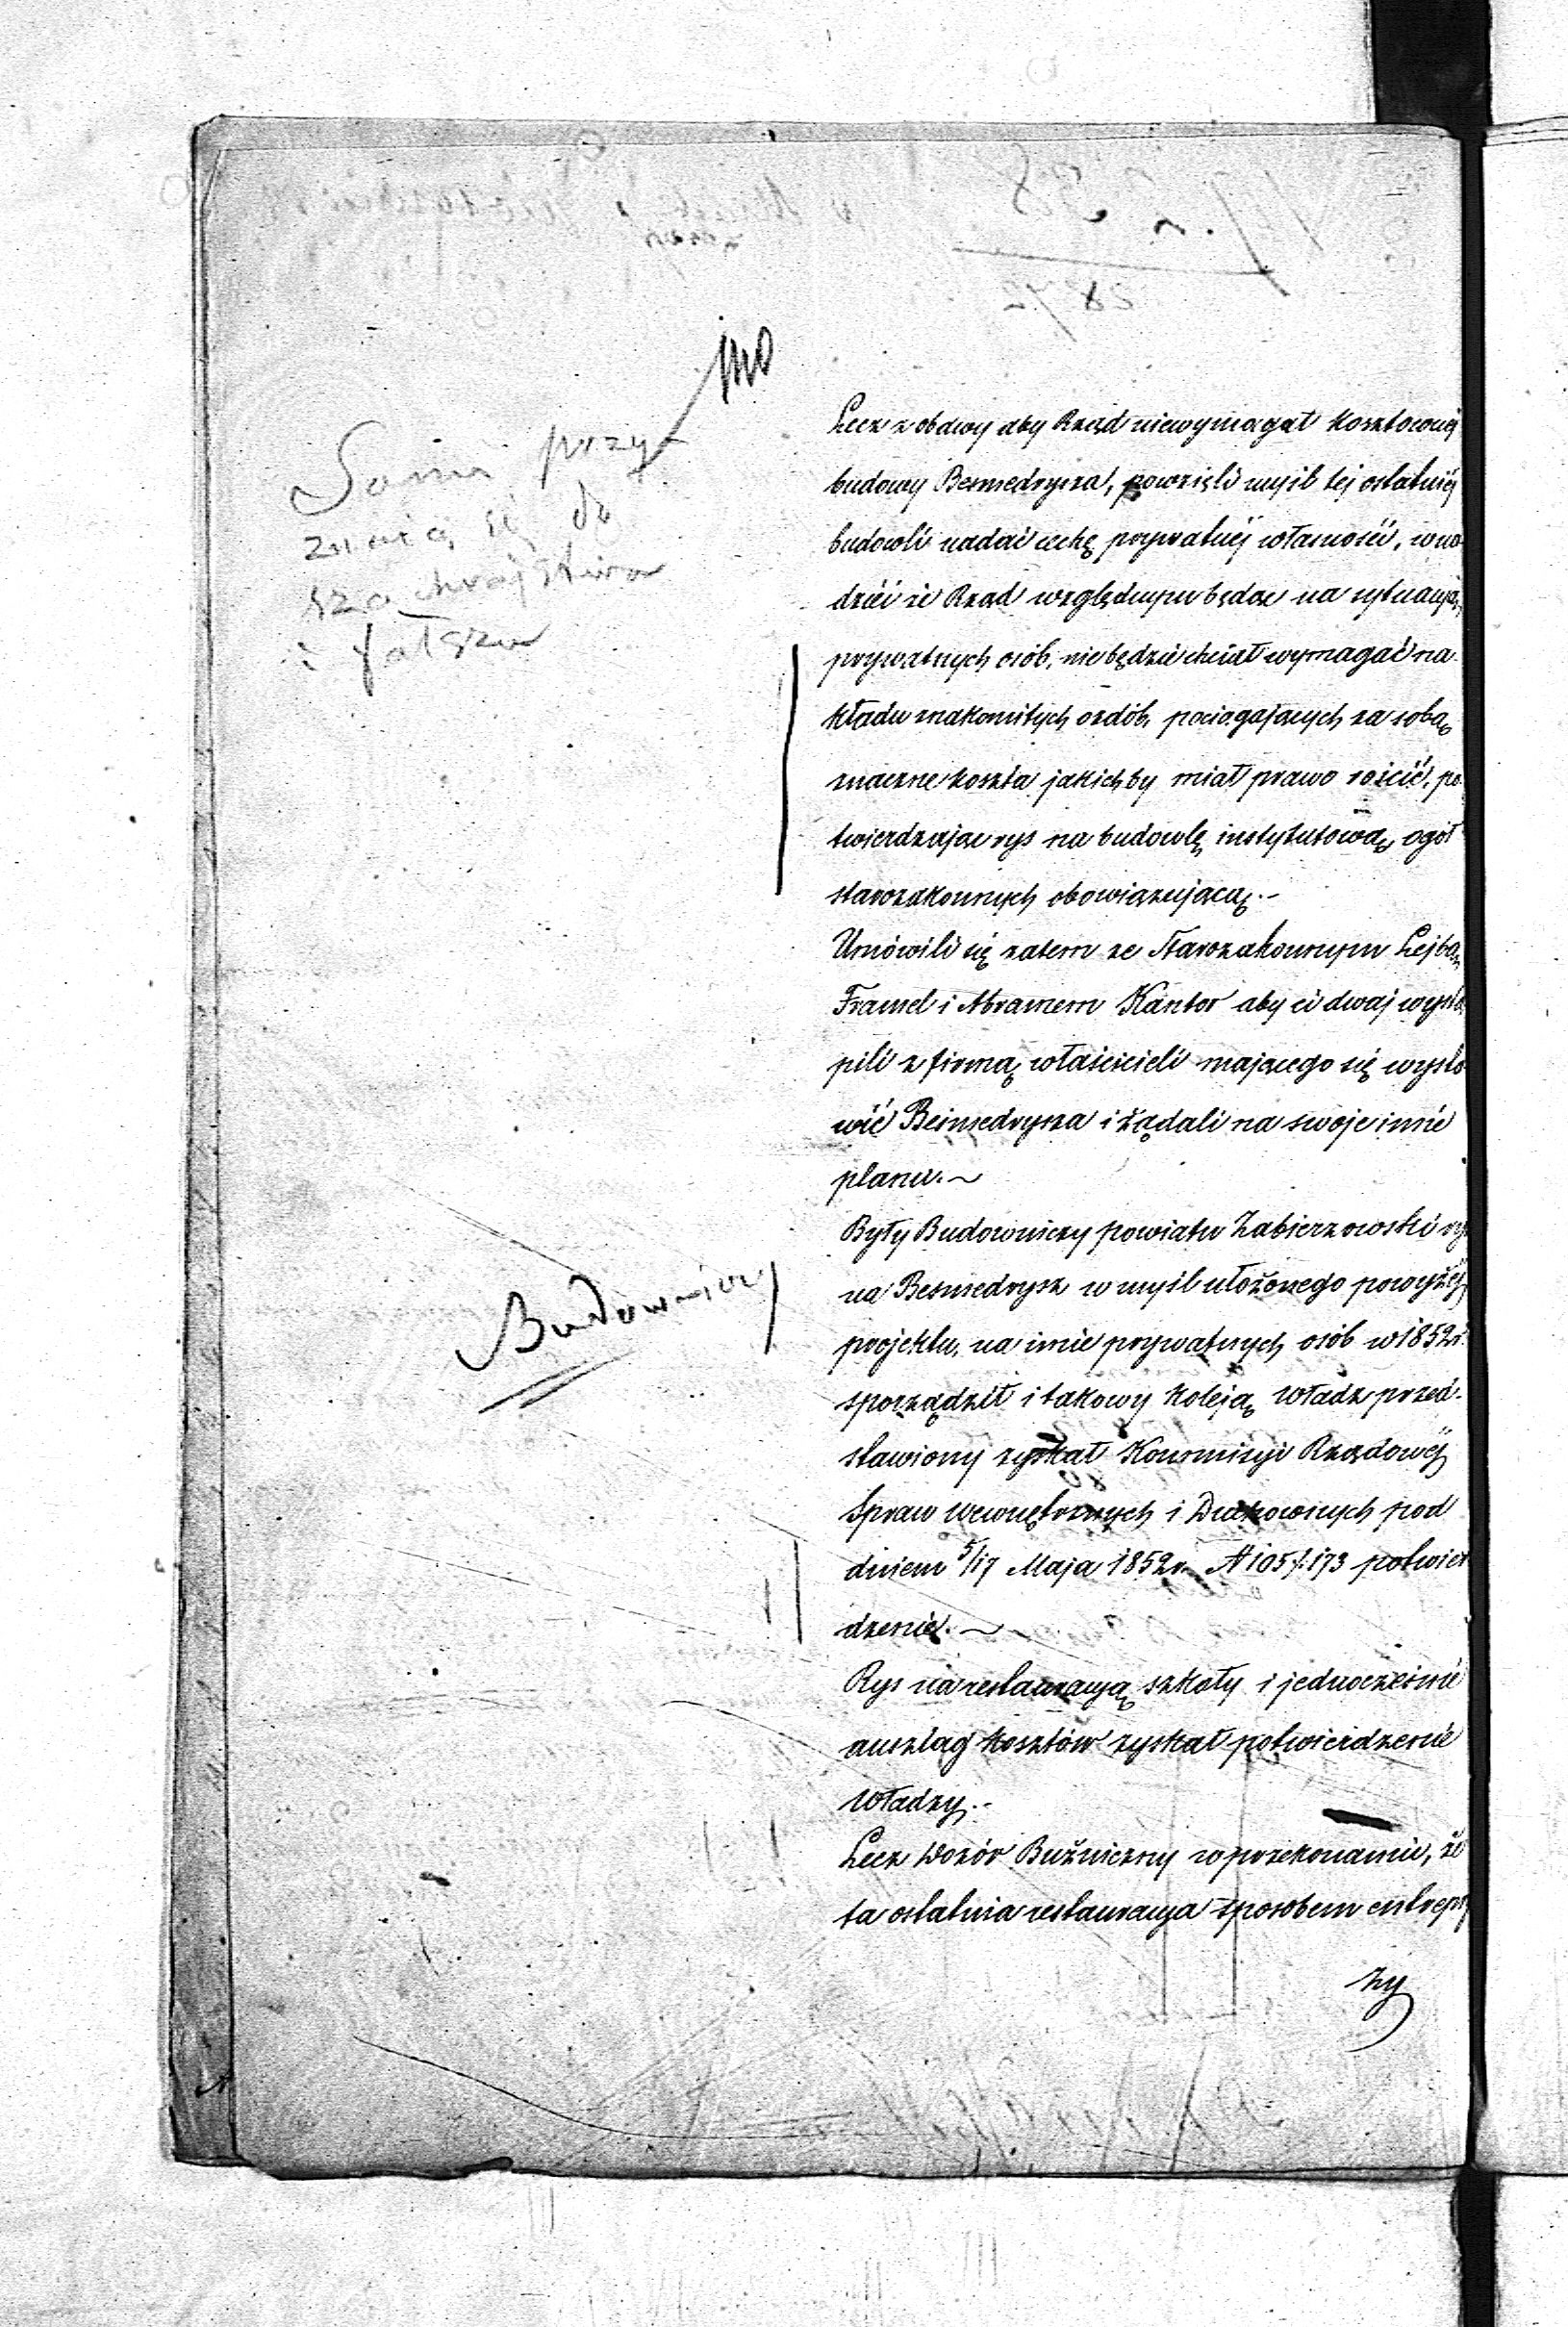 Sami przy-
znają się do
szachrajstwa
i fałszu
Lecz z obawy aby Rząd niewymagał kosztownej
budowy Besmedrysza, powzięli myśl tej ostatniéj
budowli nadać cechę prywatnéj własności, w na-
dziei że Rząd względnym będąc na sytuacyją
prywatnych osób, nie będzie chciał wymagać na-
kładu znakomitych ozdób, pociągających za sobą
znaczne koszta jakichby miał prawo rościć, po-
twierdzając rys na budowlę instytutową, ogół
starozakonnych obowiązującą.-
Umówili się zatem ze Starozakonnym Lejbą
Framel i Abramem Kantor aby ci dwaj wystą-
pili z firmą właścicieli mającego się wysta-
wić Besmedrysza i żądali na swoje imie
planu.~
Budowniczy
Były Budowniczy powiatu Zabierzowski ry
na Besmedrysz w myśl ułożonego powyżéj
projektu, na imie prywatnych osób w 1852 r.
sporządził i takowy koleją Władz przed-
stawiony zyskał Kommisyi Rządowéj
Spraw Wewnętrznych i Duchownych pod
dniem 5/17 Maja 1852 r. N 105/173 potwier
dzenie.~
Rys na restauracyą szkoły i jednocześnie
anszlag kosztów zyskał potwierdzenie
Władzy.-
Lecz Dozór Bużniczny w przekonaniu, że
ta ostatnia restauracya sposobem entrepry
zy